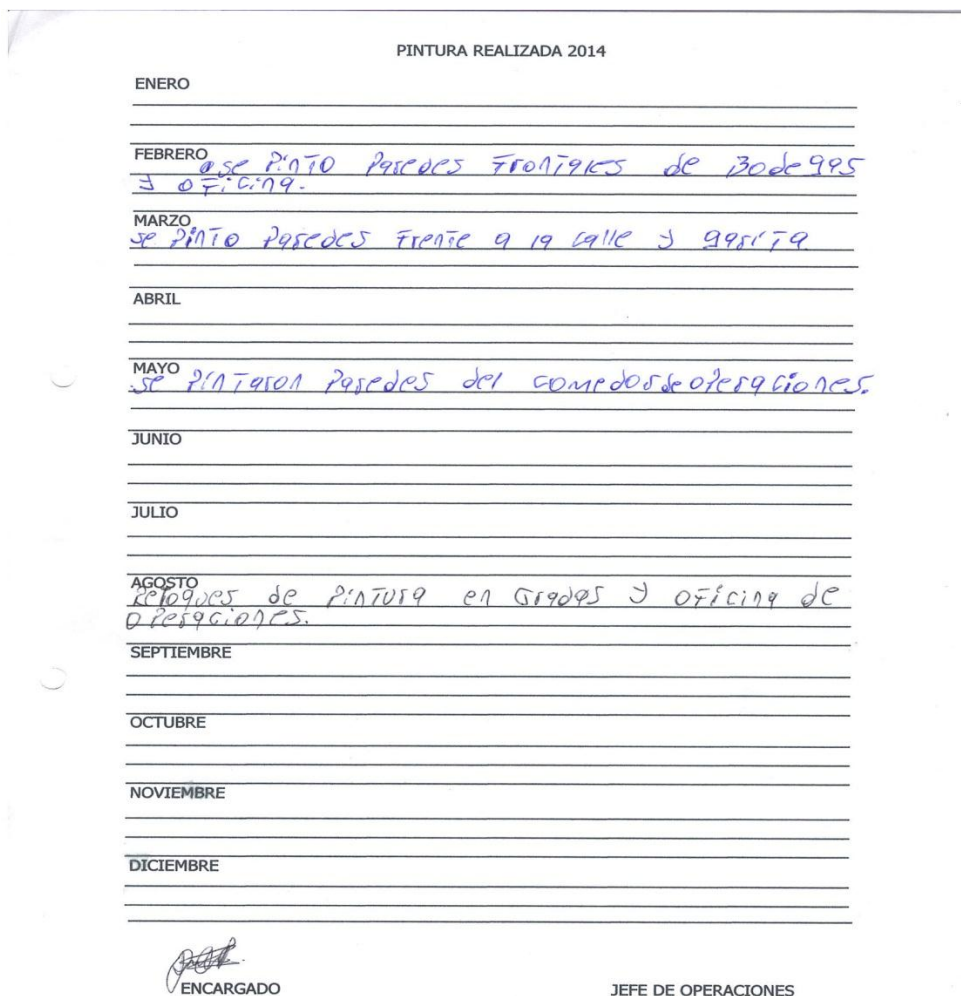 PINTURA REALIZADA 2014
ENERO
FEBRERO
se Pinto Paredes Frontales de Bodegas
y oficina.
MARZO
se Pinto Paredes Frente a la calle y garita
ABRIL
MAYO
se Pintaron Paredes del comedor de operaciones.
JUNIO
JULIO
AGOSTO
Retoques de Pintura en Gradas y oficina de
operaciones.
SEPTIEMBRE
OCTUBRE
NOVIEMBRE
DICIEMBRE
ENCARGADO JEFE DE OPERACIONES